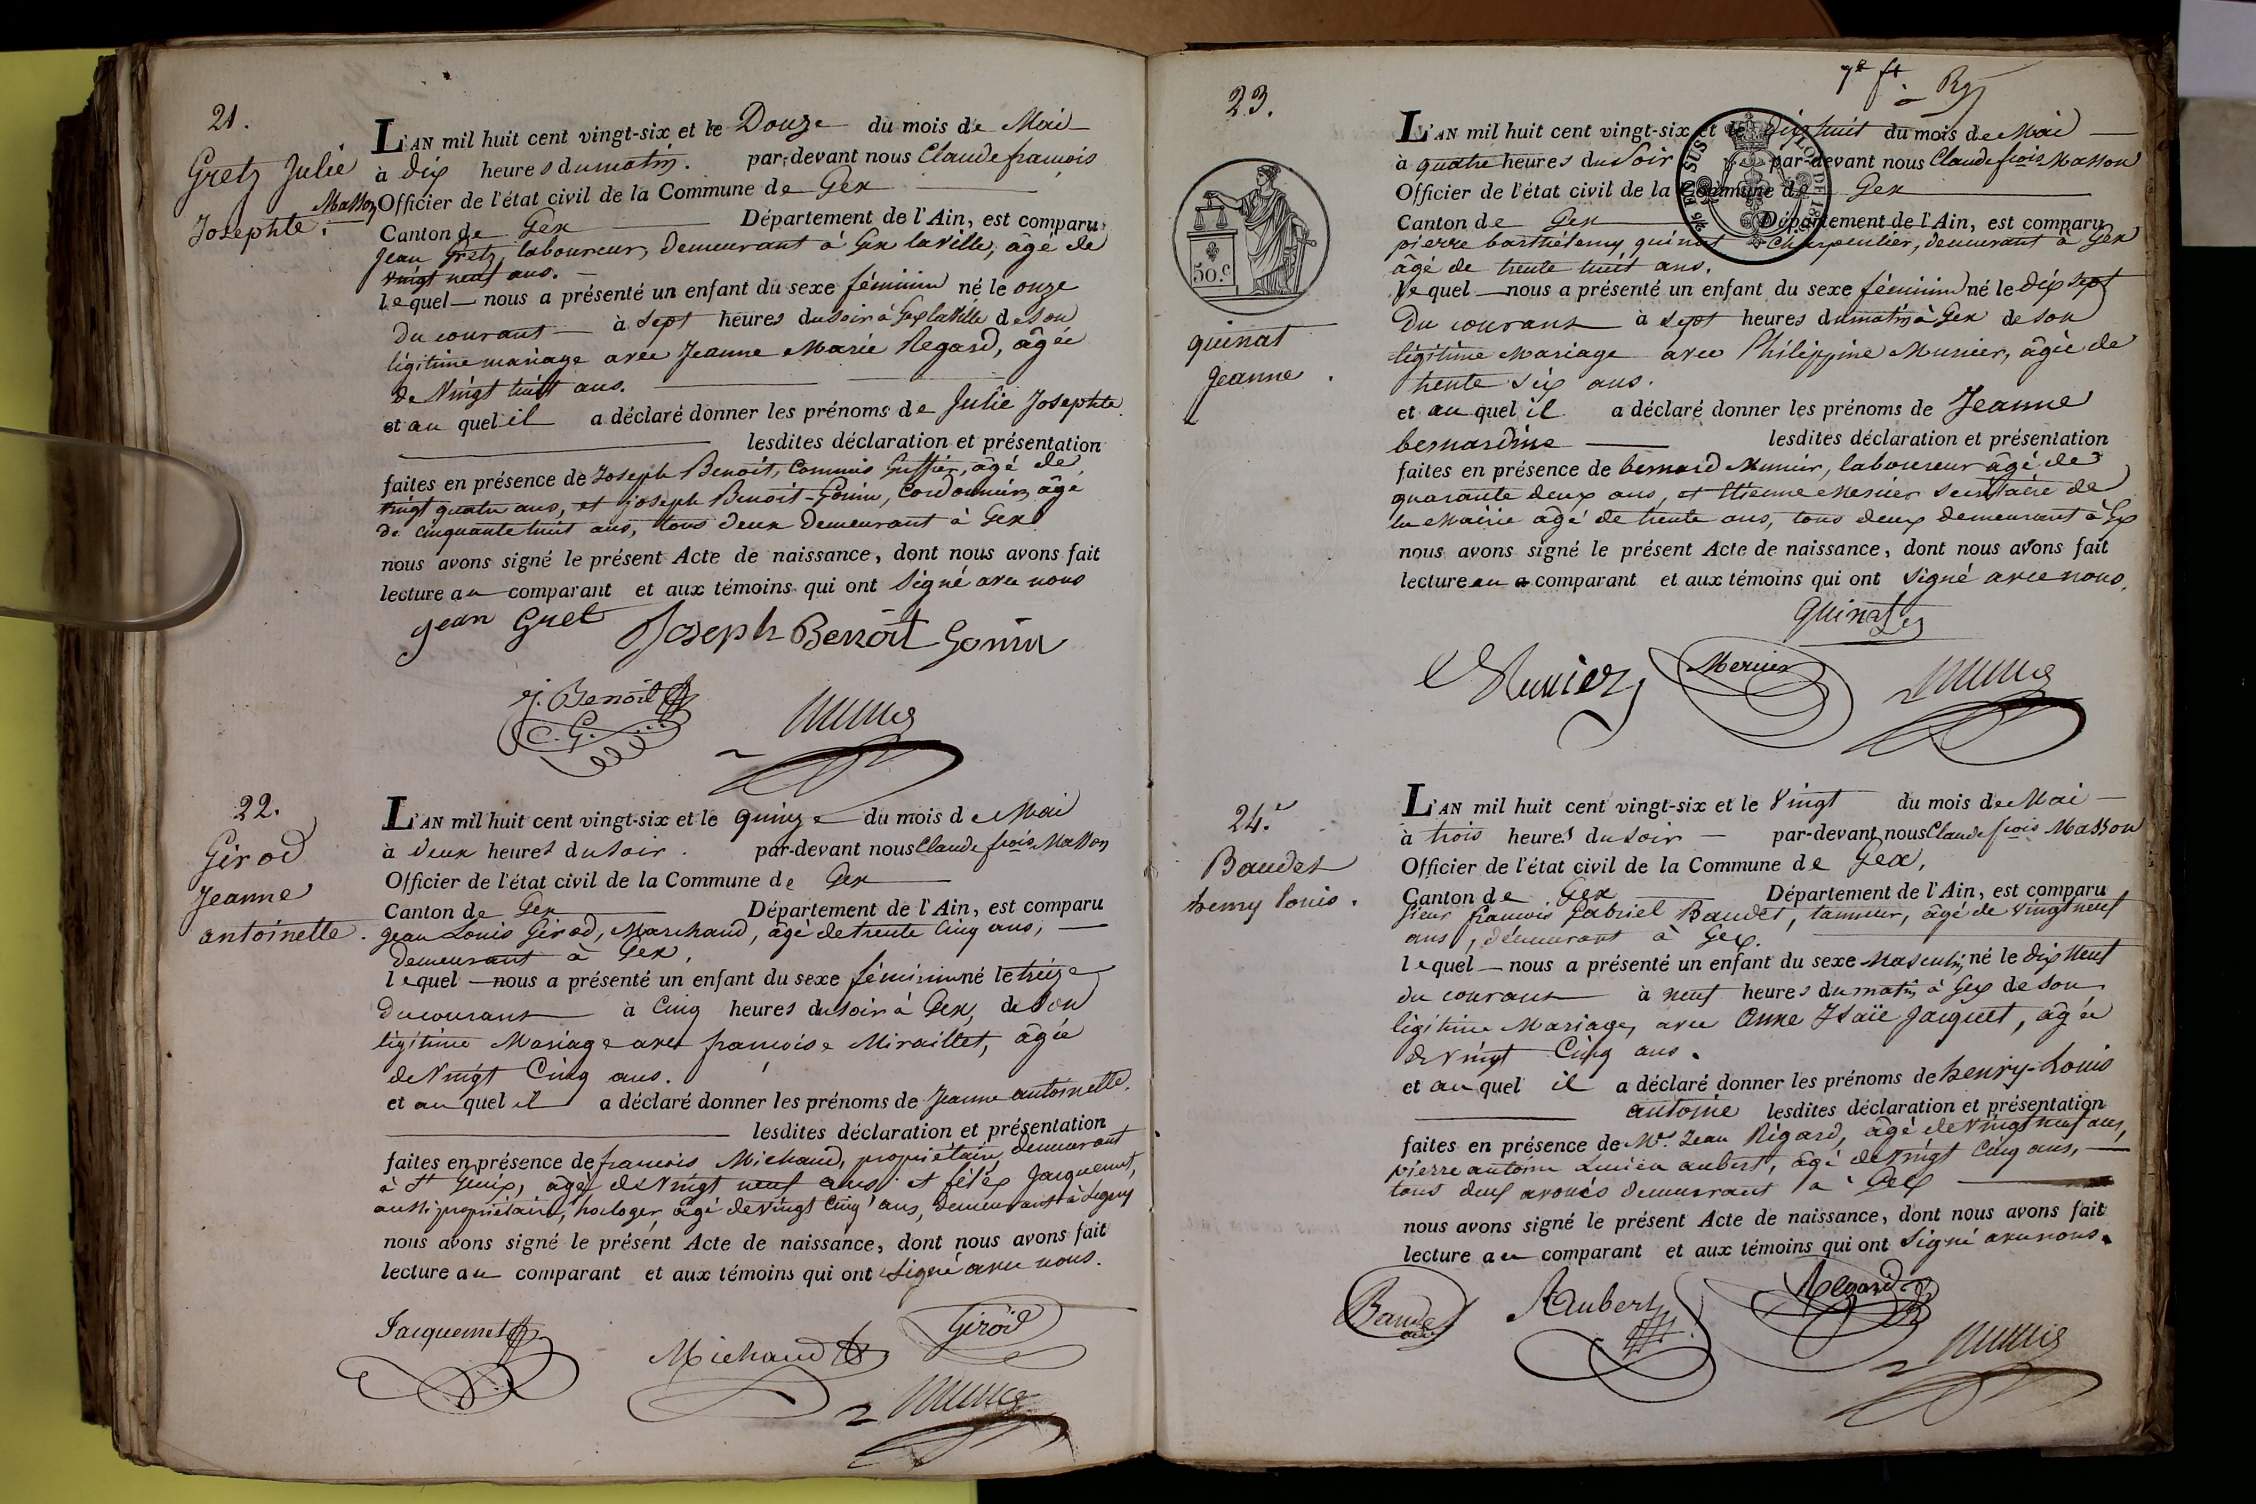 21.
Gretz Julie
Josephte.
L'AN mil huit cent vingt-six et le Douze du mois de Mai
à dix heures du matin. par-devant nous Claude françois
Masson Officier de l'état civil de la Commune de Gex
Canton de Gex Département de l'Ain, est comparu
Jean Gretz, laboureur, demeurant à Gex la ville, âgé de
vingt neuf ans.
lequel nous a présenté un enfant du sexe féminin né le onze
du courant à sept heures du soir à Gex la Ville de son
légitime mariage avec Jeanne Marie Regard, âgée
de Vingt huit ans.
et au quel il a déclaré donner les prénoms de Julie Josephte
lesdites déclaration et présentation
faites en présence de Joseph Benoit, Commis Greffier, âgé de
vingt quatre ans, et joseph Benoit-Gonin, Cordonnier, âgé
de cinquante huit ans, tous deux demeurant à Gex
nous avons signé le présent Acte de naissance, dont nous avons fait
lecture au comparant et aux témoins qui ont Signé avec nous
jean Gret Joseph Benoit Gonin
j. Benoit
C. G.
22.
Girod
Jeanne
antoinette.
L'AN mil huit cent vingt-six et le quinze du mois de Mai
à deux heures du soir. par-devant nous Claude frcois Masson
Officier de l'état civil de la Commune de Gex
Canton de Gex Département de l'Ain, est comparu
Jean Louis Girod, Marchand, âgé de trente Cinq ans,
demeurant à Gex,
lequel nous a présenté un enfant du sexe féminin né le treize
du courant à Cinq heures du soir à Gex, de son
légitime Mariage avec françoise Miraillet, âgée
de Vingt Cinq ans.
et au quel il a déclaré donner les prénoms de Jeanne antoinette.
lesdites déclaration et présentation
faites en présence de francois Michaud, propriétaire, demeurant
à St Genix, âgé de Vingt neuf ans et félix Jacquemet,
aussi propriétaire, horloger âgé de Vingt Cinq ans, demeurant à Segny
nous avons signé le présent Acte de naissance, dont nous avons fait
lecture au comparant et aux témoins qui ont Signé avec nous.
Jacquemet Michaud Girod
23.
7e ft
Rg
L'AN mil huit cent vingt-six et le dix huit du mois de Mai
à quatre heures du Soir par-devant nous Claude frcois Masson
Officier de l'état civil de la Commune de Gex
Canton de Gex Département de l'Ain, est comparu
pierre barthélemy quinat Charpentier, demeurant à Gex
âgé de trente huit ans.
lequel nous a présenté un enfant du sexe féminin né le dix sept
du courant à sept heures du matin à Gex de son
légitime Mariage avec Philippine Munier, âgée de
trente six ans.
et au quel il a déclaré donner les prénoms de Jeanne
bernardine lesdites déclaration et présentation
faites en présence de bernard Munier, laboureur âgé de
quarante deux ans, et Etienne Mercier Secrétaire de
la Mairie âgé de trente ans, tous deux demeurant à Gex
nous avons signé le présent Acte de naissance, dont nous avons fait
lecture au comparant et aux témoins qui ont Signé avec nous.
50.c
quinat
Jeanne.
Quinat
Munier Mercier
24.
Baudet
henry louis.
L'AN mil huit cent vingt-six et le Vingt du mois de Mai
à trois heures du soir par-devant nous Claude frcois Masson
Officier de l'état civil de la Commune de Gex,
Canton de Gex Département de l'Ain, est comparu
Sieur françois Gabriel Baudet, tanneur, âgé de vingt neuf
ans, demeurant à Gex.
lequel nous a présenté un enfant du sexe Masculin né le dix neuf
du courant à neuf heures du matin à Gex de son
légitime Mariage, avec Anne Isaïe Jacquet, âgée
de vingt Cinq ans.
et au quel il a déclaré donner les prénoms de henry-Louis
antoine lesdites déclaration et présentation
faites en présence de Mrs Jean Régard, âgé de Vingt neuf ans,
pierre antoine Lucien aubert, âgé de Vingt Cinq ans,
tous deux avoués demeurant à Gex
nous avons signé le présent Acte de naissance, dont nous avons fait
lecture au comparant et aux témoins qui ont Signé avec nous.
Baudet Aubert Regard